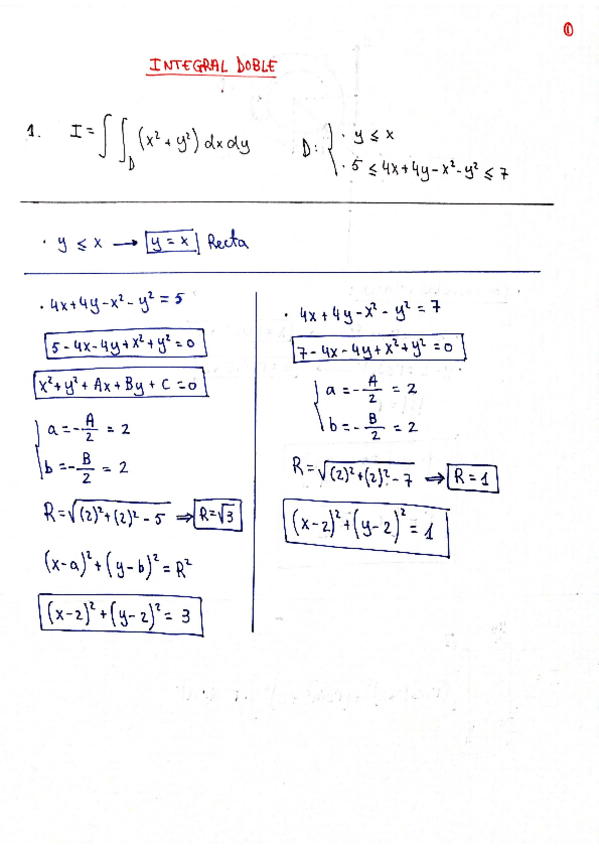 ①
INTEGRAL DOBLE
1. I = ∫∫_D (x² + y²) dx dy D: { · y ≤ x
· 5 ≤ 4x+4y-x²-y² ≤ 7
· y ≤ x → y = x Recta
· 4x+4y-x²-y² = 5
5-4x-4y+x²+y² = 0
x²+y²+Ax+By+C = 0
{ a = -A/2 = 2
b = -B/2 = 2
R = √((2)²+(2)²-5) ⇒ R = √3
(x-a)²+(y-b)² = R²
(x-2)²+(y-2)² = 3
· 4x+4y-x²-y² = 7
7-4x-4y+x²+y² = 0
{ a = -A/2 = 2
b = -B/2 = 2
R = √((2)²+(2)²-7) ⇒ R = 1
(x-2)²+(y-2)² = 1